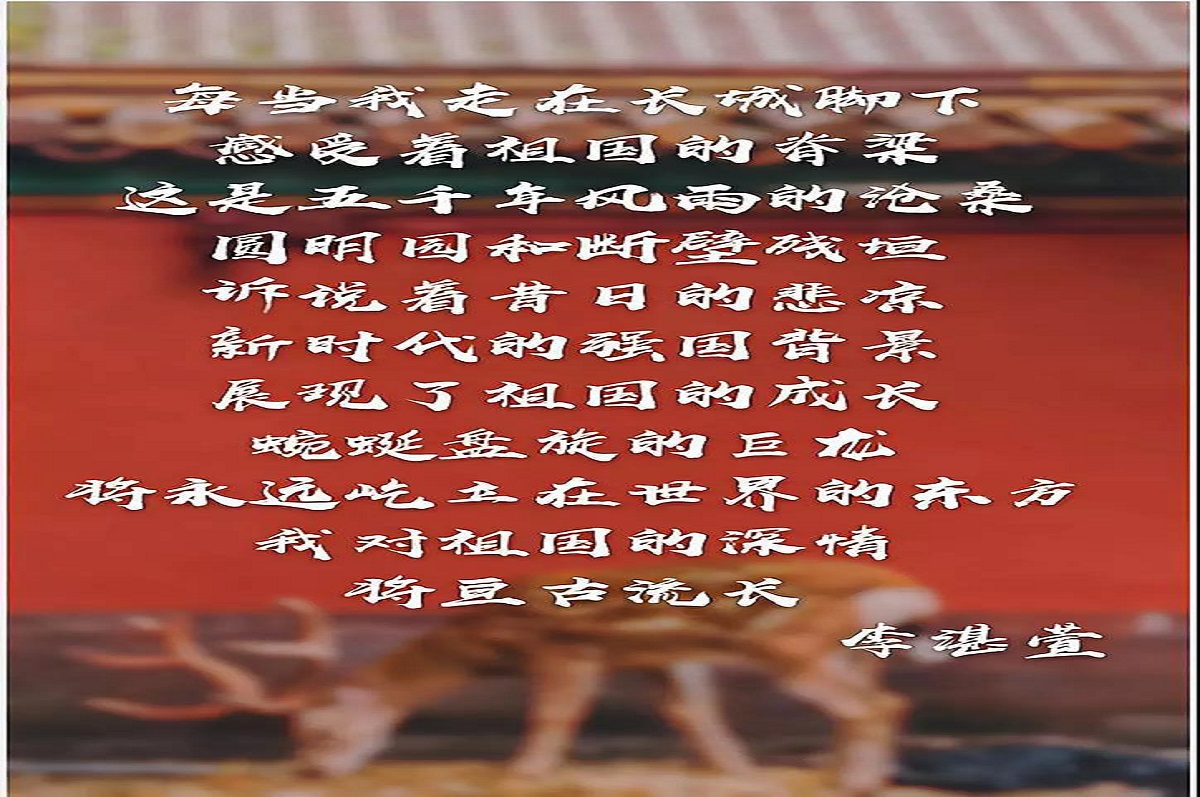 每当我走在长城脚下
感受着祖国的脊梁
这是五千年风雨的沧桑
圆明园和断壁残垣
诉说着昔日的悲凉
新时代的强国背景
展现了祖国的成长
蜿蜒盘旋的巨龙
将永远屹立在世界的东方
我对祖国的深情
将亘古流长
李湛萱